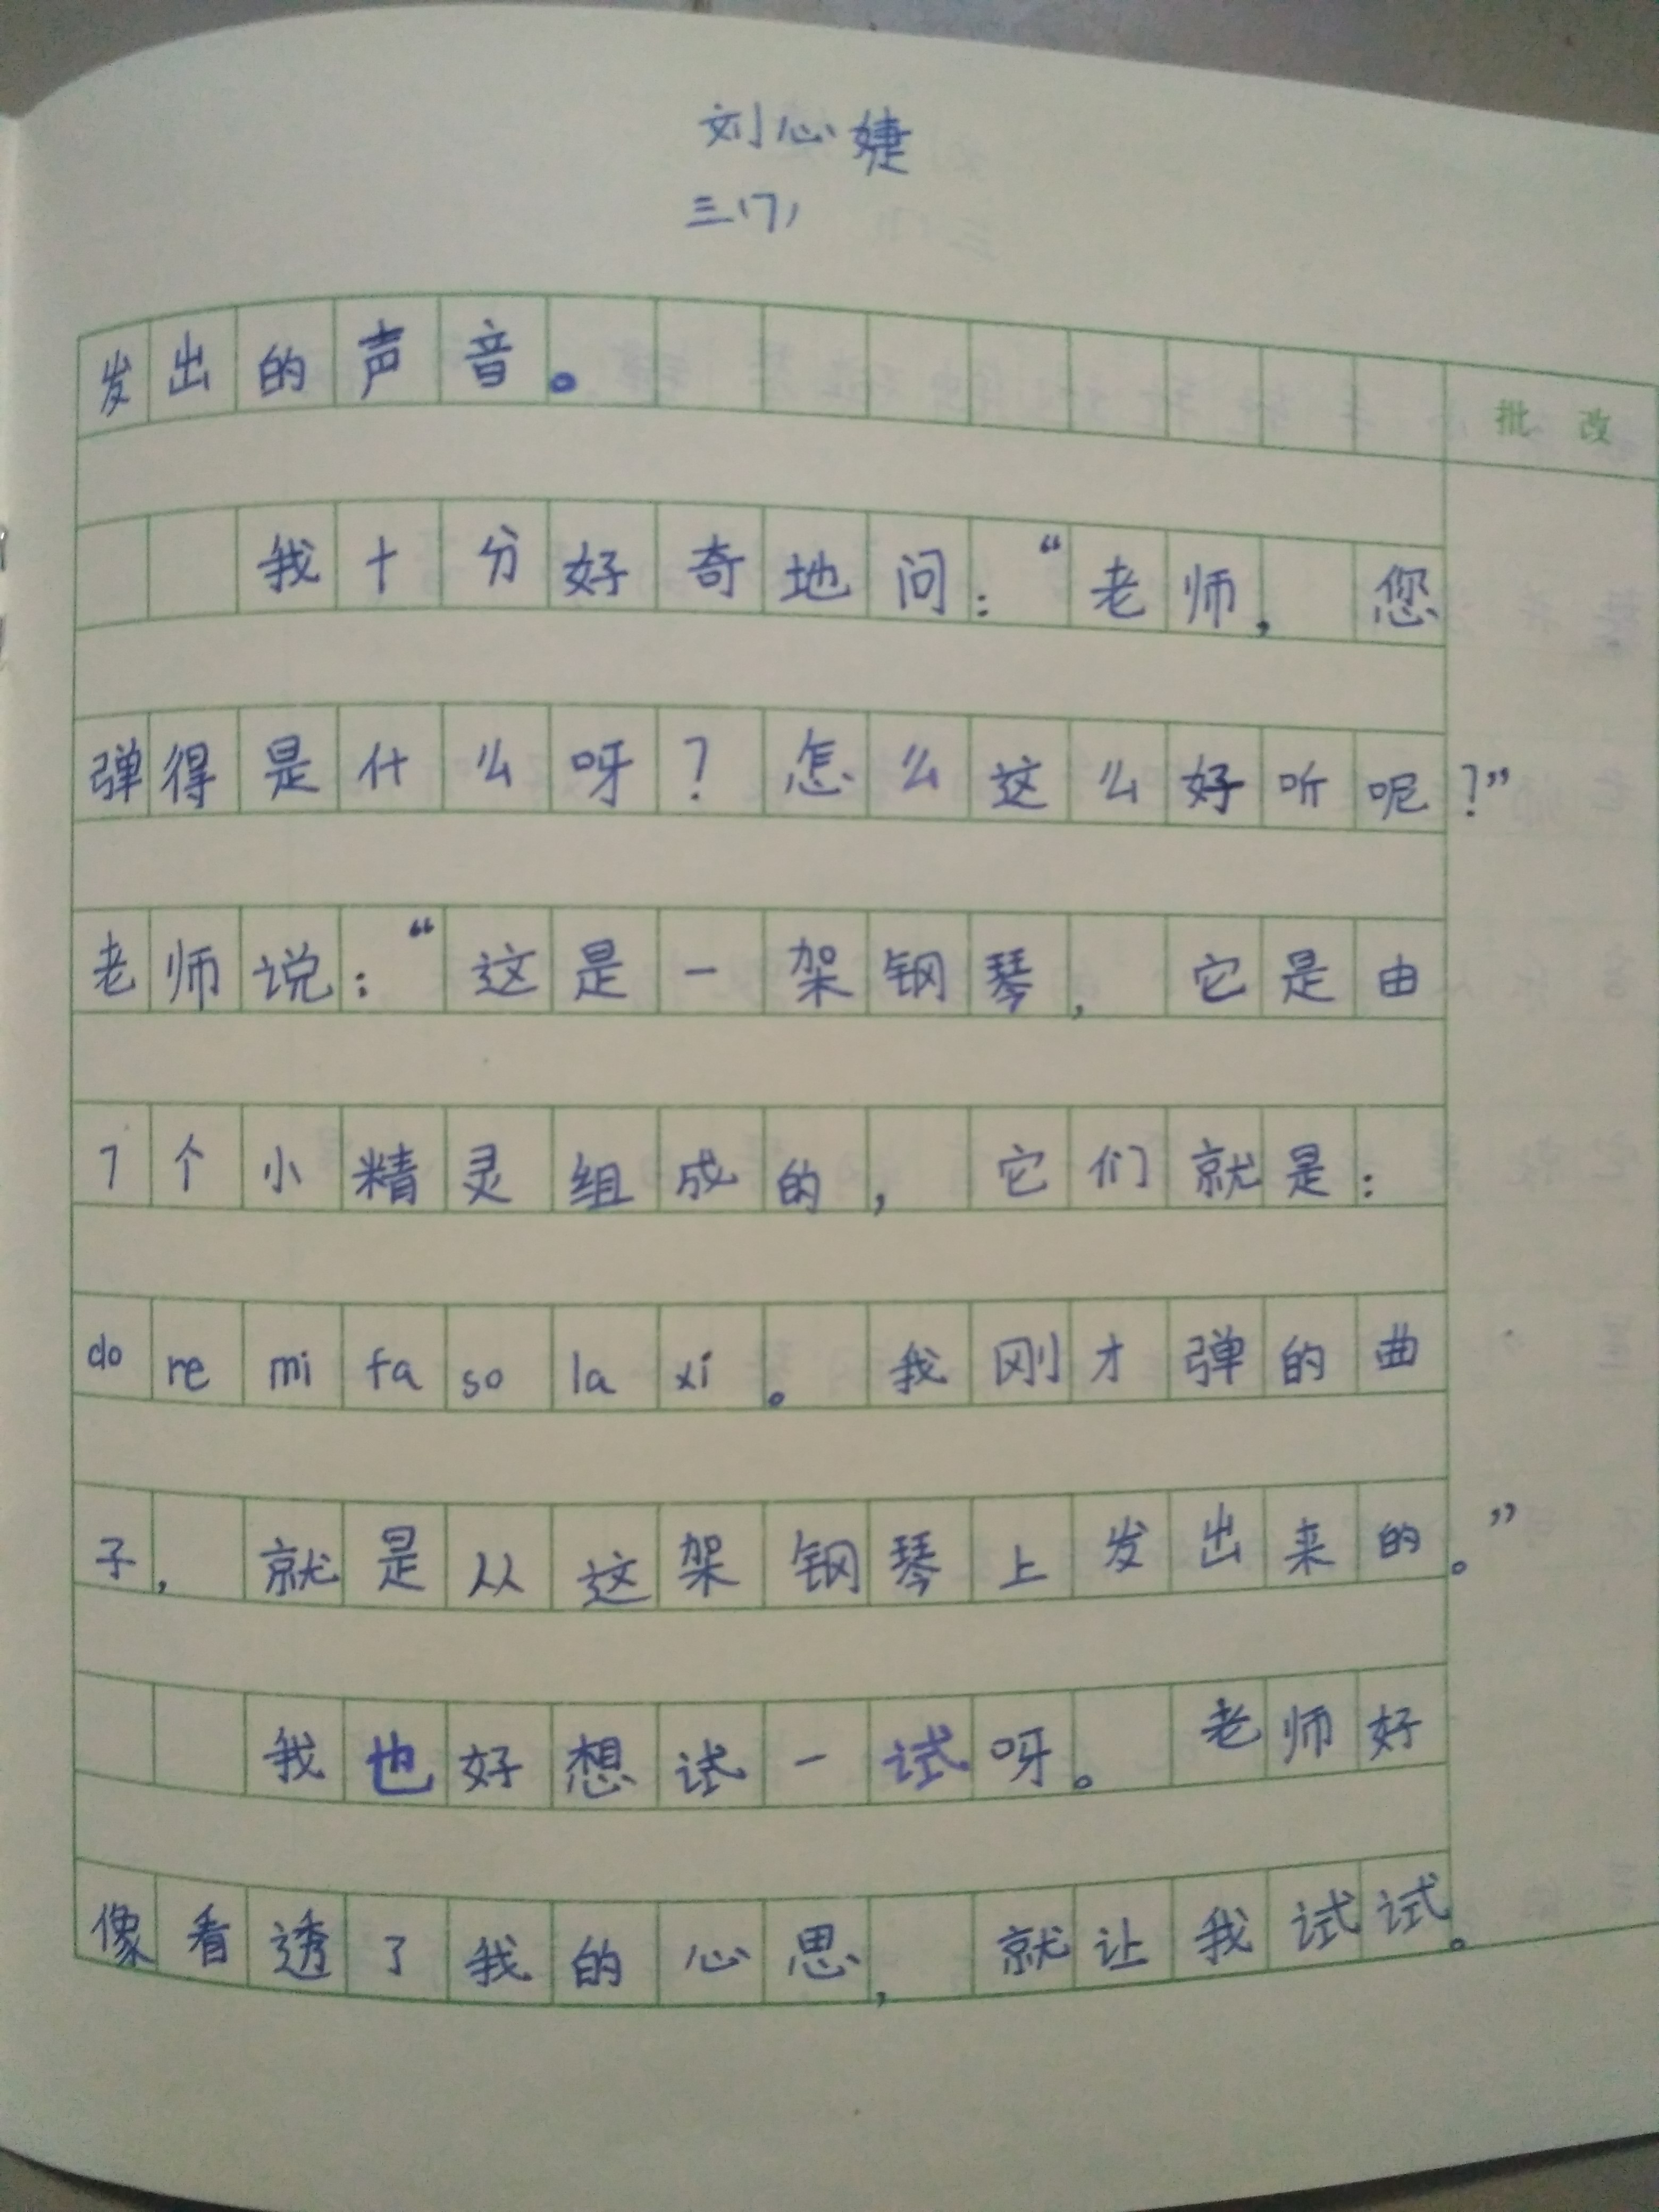 刘心婕
三(7)
发出的声音。
批 改
我十分好奇地问：“老师，您
弹得是什么呀？怎么这么好听呢？”
老师说：“这是一架钢琴，它是由
7个小精灵组成的，它们就是：
do re mi fa so la xi。我刚才弹的曲
子，就是从这架钢琴上发出来的。”
我也好想试一试呀。老师好
像看透了我的心思，就让我试试。